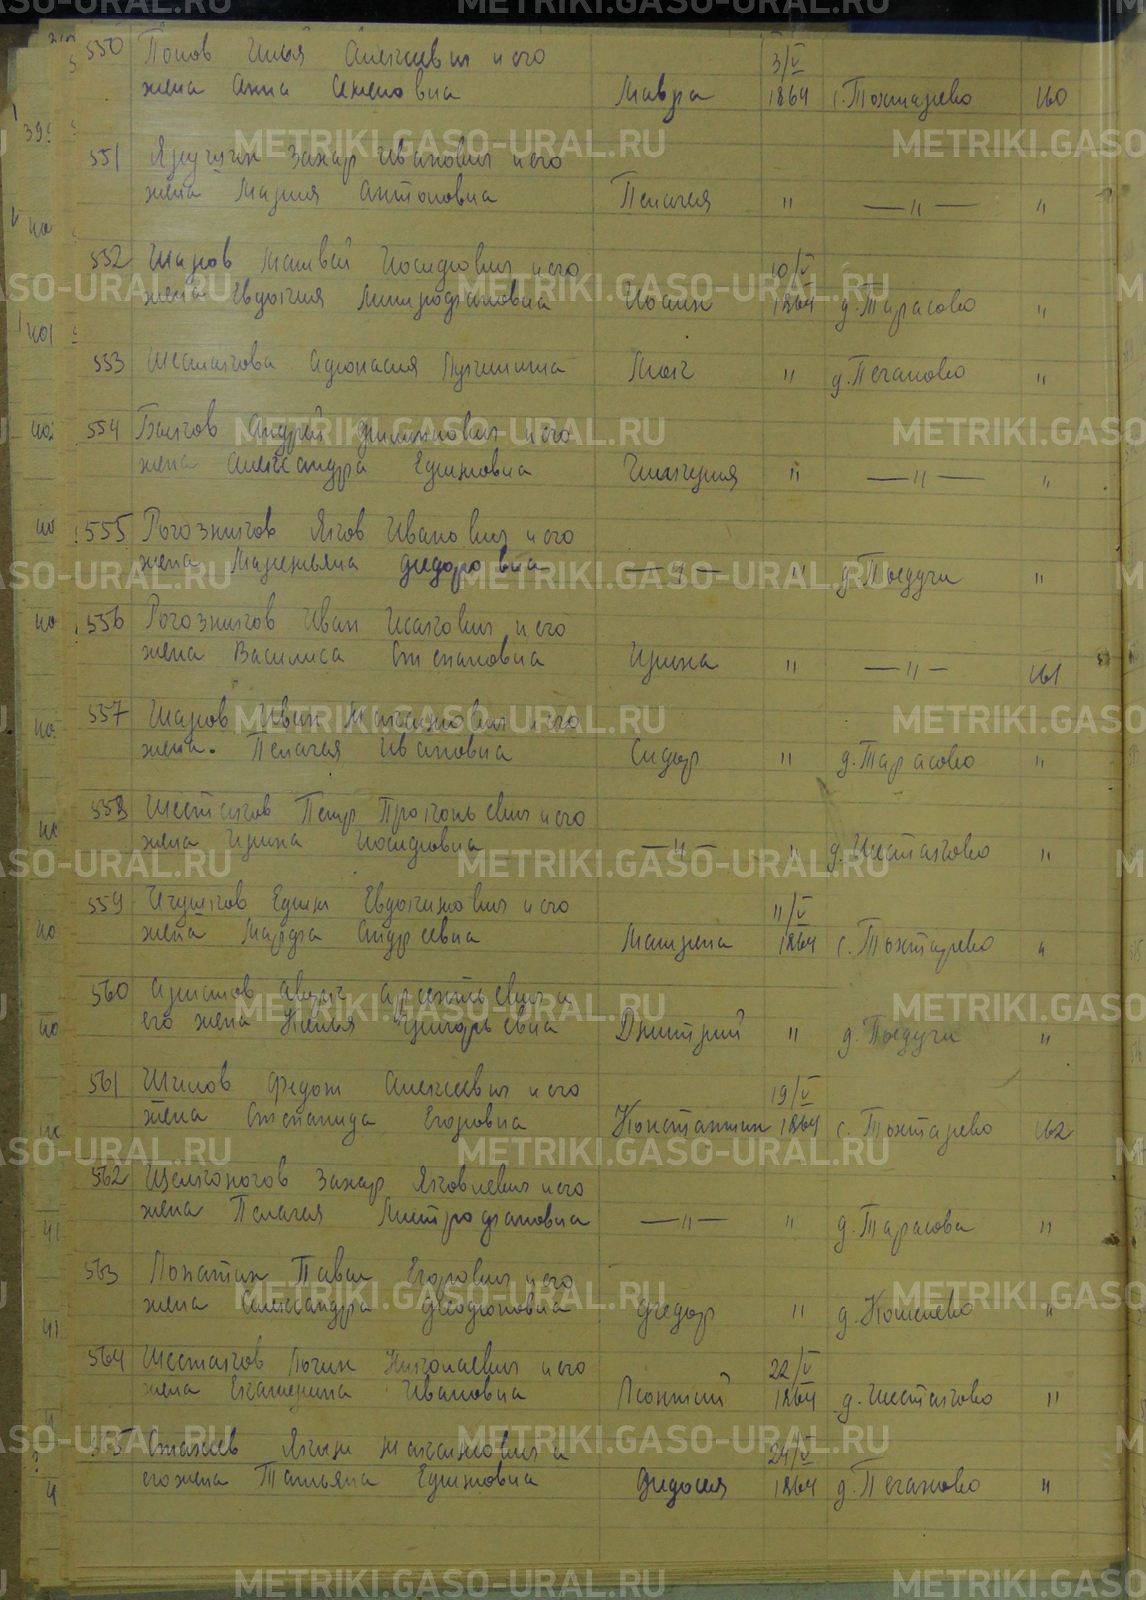 550 Попов Илья Алексеевич и его
жена Анна Семеновна Мавра 3/V 1864 с. Тохтарево 160
551 Захар Иванович и его
жена Мария Антоновна Пелагея " —"— "
552 Шаров Матвей Иосифович и его
жена Евдокия Митрофановна Иоанн 10/V 1864 д. Тарасово "
553 Шестакова Афонасия " д. Пеганово "
554 Быков Андрей Филиппович и его
жена Александра Ефимовна Гликерия " —"— "
555 Рогозников Яков Иванович и его
жена Маремьяна Федоровна —"— " д. "
556 Рогозников Иван Исакович и его
жена Василиса Степановна Ирина " —"— 161
557 Шаров Иван Максимович и его
жена. Пелагея Ивановна Сидор " д. Тарасово "
558 Шестаков Петр Прокопьевич и его
жена Ирина Иосифовна —"— " д. Шестаково "
559 Ефим Евдокимович и его
жена Марфа Андреевна Матрена 11/V 1864 с. Тохтарево "
560 Арсентьевич и
его жена Григорьевна Дмитрий " д. "
561 Шилов Федот Алексеевич и его
жена Степанида Егоровна Константин 19/V 1864 с. Тохтарево 162
562 Щелконогов Захар Яковлевич и его
жена Пелагея Митрофановна —"— " д. Тарасова "
563 Лопатин Павел Егорович и его
жена Александра Феофоновна Федор " д. Кошелево "
564 Шестаков Логин Николаевич и его
жена Екатерина Ивановна Леонтий 22/V 1864 д. Шестаково "
Яким Максимович и
его жена Татьяна Ефимовна Федосия 24/V 1864 д. Пеганово "
METRIKI.GASO-URAL.RU